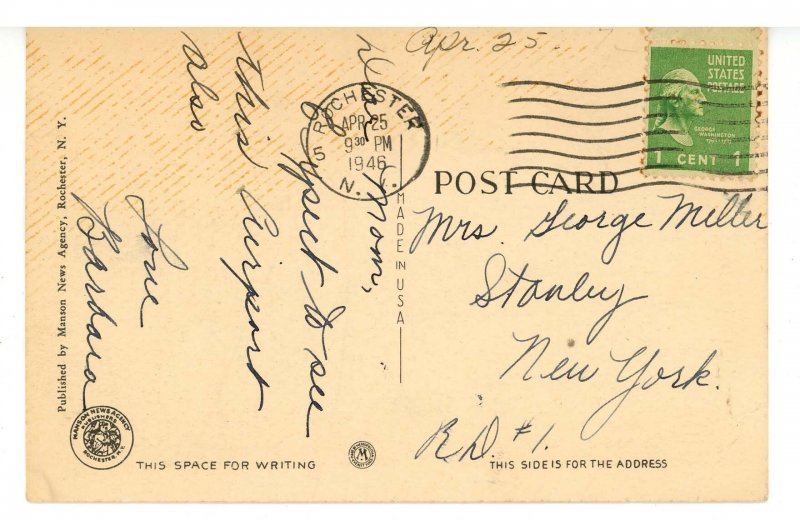 Apr. 25.
UNITED
STATES
POSTAGE
GEORGE
WASHINGTON
1 CENT 1
ROCHESTER
5
APR 25
9 30 PM
1946
N. Y.
POST CARD
Mrs. George Miller
Stanley
New York.
R.D. #1.
Dear Mom,
Expect to see
this Airport
also
Love
Barbara
MADE IN USA
Published by Manson News Agency, Rochester, N. Y.
MANSON NEWS AGENCY
PUBLISHERS
ROCHESTER, N.Y.
THIS SPACE FOR WRITING
M
THIS SIDE IS FOR THE ADDRESS